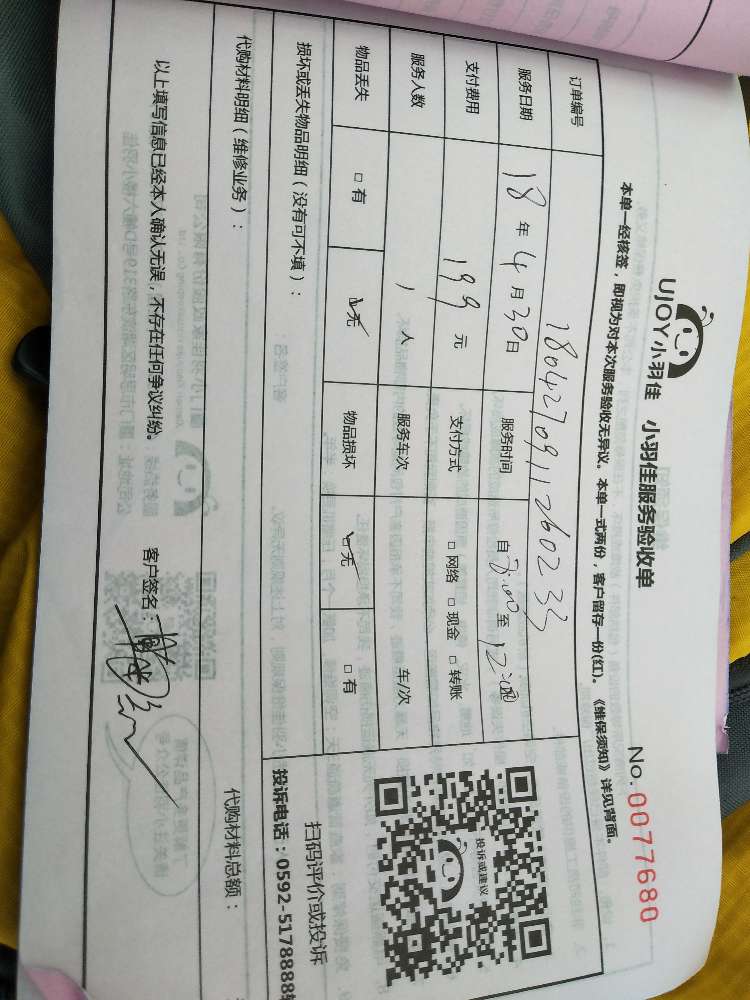 UJOY小羽佳 小羽佳服务验收单
No. 0077680
本单一经核签，即视为对本次服务验收无异议。本单一式两份，客户留存一份(红)。《维保须知》详见背面。
订单编号 180427091126023
服务日期 18 年 4 月 30 日 服务时间 自 8:00 至 12:00
支付费用 199 元 支付方式 □ 网络 □ 现金 □ 转账
服务人数 1 人 服务车次 车/次
物品丢失 □ 有 □ 无 物品损坏 □ 无 □ 有
损坏或丢失物品明细（没有可不填）：
投诉或建议
扫码评价或投诉
投诉电话：0592-5178888转
代购材料明细（维修业务）：
代购材料总额：
以上填写信息已经本人确认无误，不存在任何争议纠纷。
客户签名：